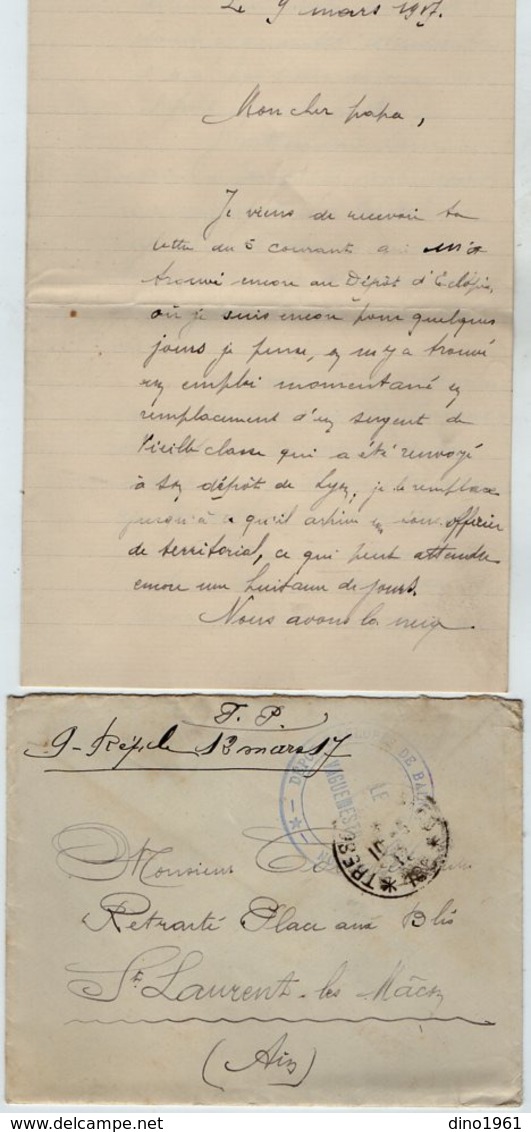 Le 9 mars 1917.
Mon cher papa,
Je viens de recevoir ta
lettre du 5 courant a m'a
trouvé encore au Dépôt d'Eclopés,
où je suis encore pour quelques
jours je pense, on m'y a trouvé
un emploi momentané en
remplacement d'un sergent de
Vieille classe qui a été renvoyé
à son dépôt de Lyon, je le remplace
jusqu'à ce qu'il arrive un sous-officier
de territorial, ce qui peut attendre
encore une huitaine de jours.
Nous avons la neige
F. P.
9 - Rép. le 13 mars 17
DE BAC
VAGUEMEST
LE
TRESO
Monsieur
Retraité Place aux Blés
St Laurent-les Mâcon
(Ain)
dino1961